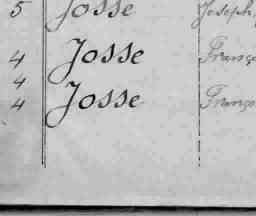 5 Josse Joseph,
4 Josse Franço
4
4 Josse Franço